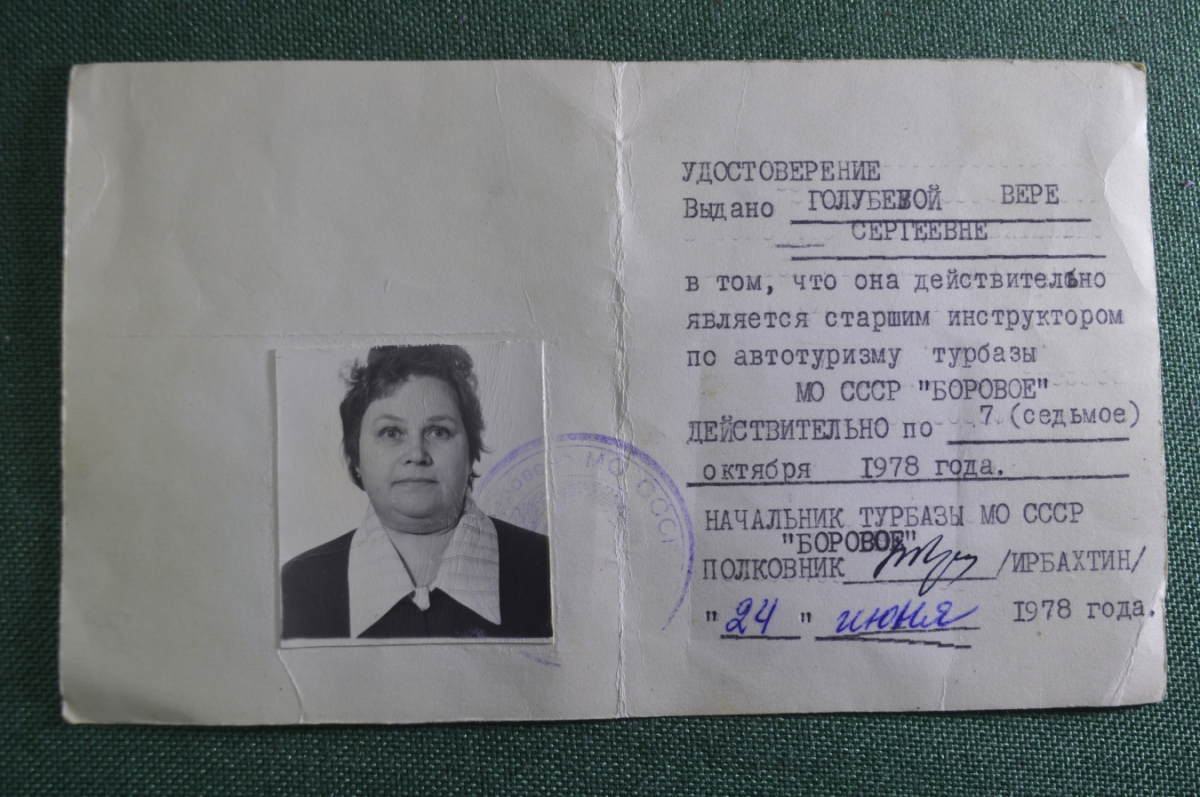 УДОСТОВЕРЕНИЕ
Выдано ГОЛУБЕВОЙ ВЕРЕ
СЕРГЕЕВНЕ
в том, что она действительно
является старшим инструктором
по автотуризму турбазы
МО СССР "БОРОВОЕ"
ДЕЙСТВИТЕЛЬНО по 7 (седьмое)
октября 1978 года.
НАЧАЛЬНИК ТУРБАЗЫ МО СССР
"БОРОВОЕ"
ПОЛКОВНИК /ИРБАХТИН/
"24" июня 1978 года.
МО СССР